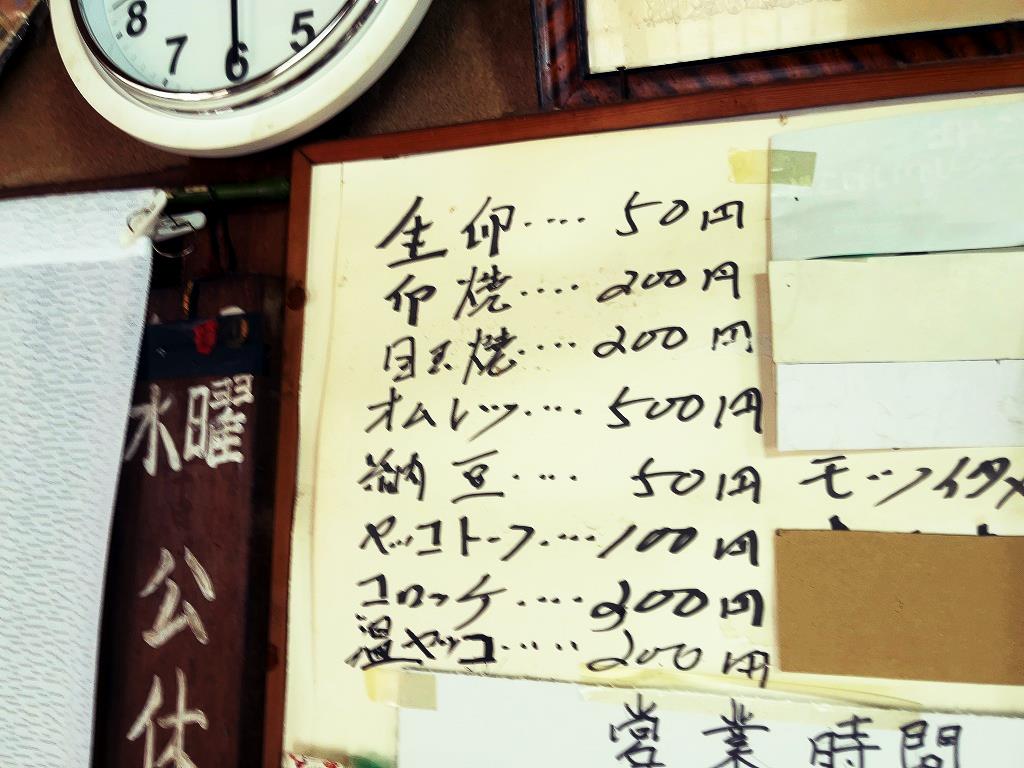 8 7 6 5
生卵････ 50円
卵焼････ 200円
目玉焼････ 200円
オムレツ････ 500円
納豆････ 50円
ヤッコトーフ････ 100円
コロッケ････ 200円
温ヤッコ･････ 200円
モーツイタメ
営業時間
水曜公休